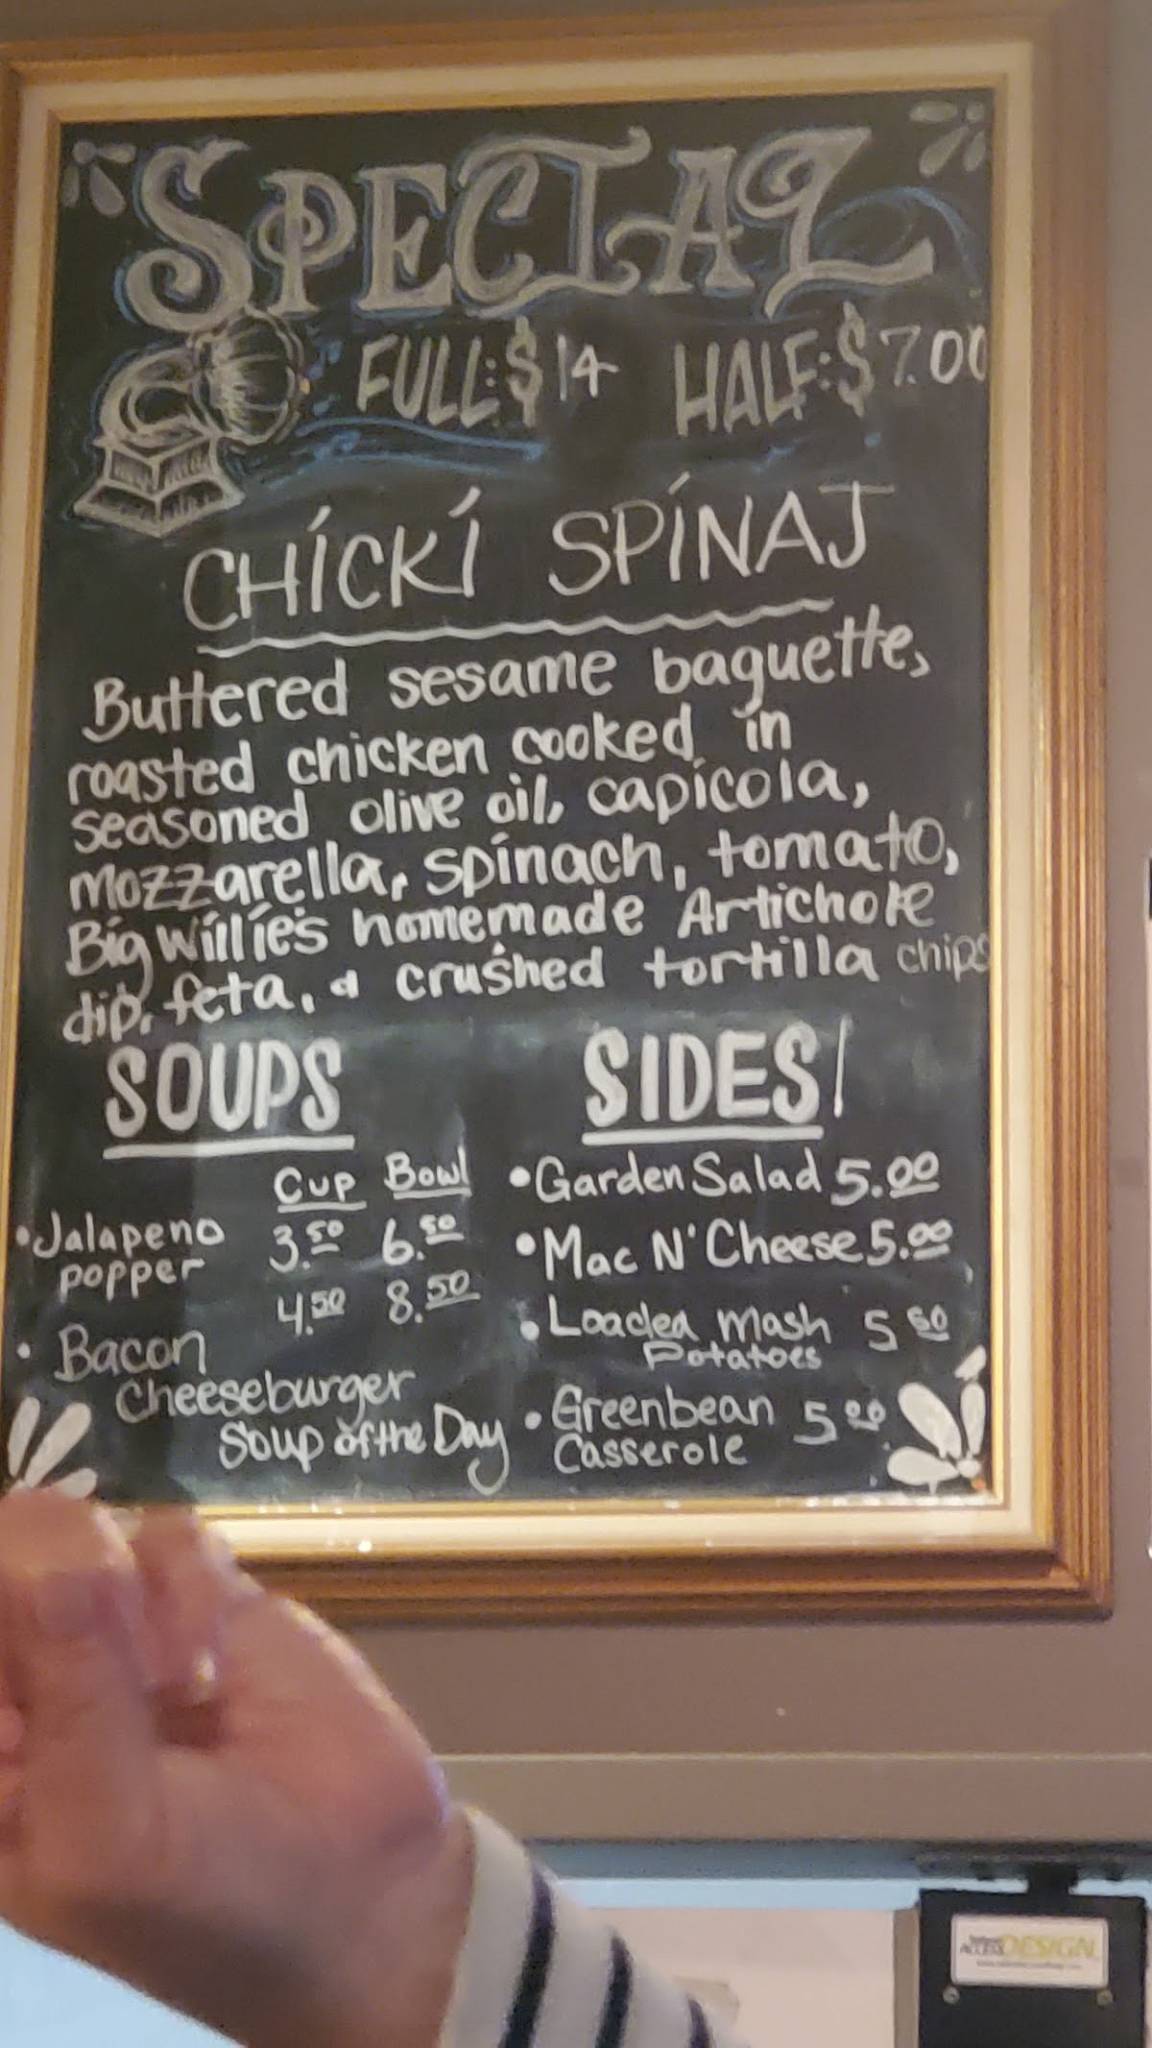 SPECIAL
FULL: $14 HALF: $7.00
CHICKI SPINAJ
Buttered sesame baguette,
roasted chicken cooked in
seasoned olive oil, capicola,
mozzarella, spinach, tomato,
Big Willie's homemade Artichoke
dip, feta, & crushed tortilla chips
SOUPS
Cup Bowl
• Jalapeno 3.50 6.50
popper
4.50 8.50
• Bacon
Cheeseburger
Soup of the Day
SIDES/
• Garden Salad 5.00
• Mac N' Cheese 5.00
• Loaded mash 5 50
Potatoes
• Greenbean 5 00
Casserole
ACCESS DESIGN